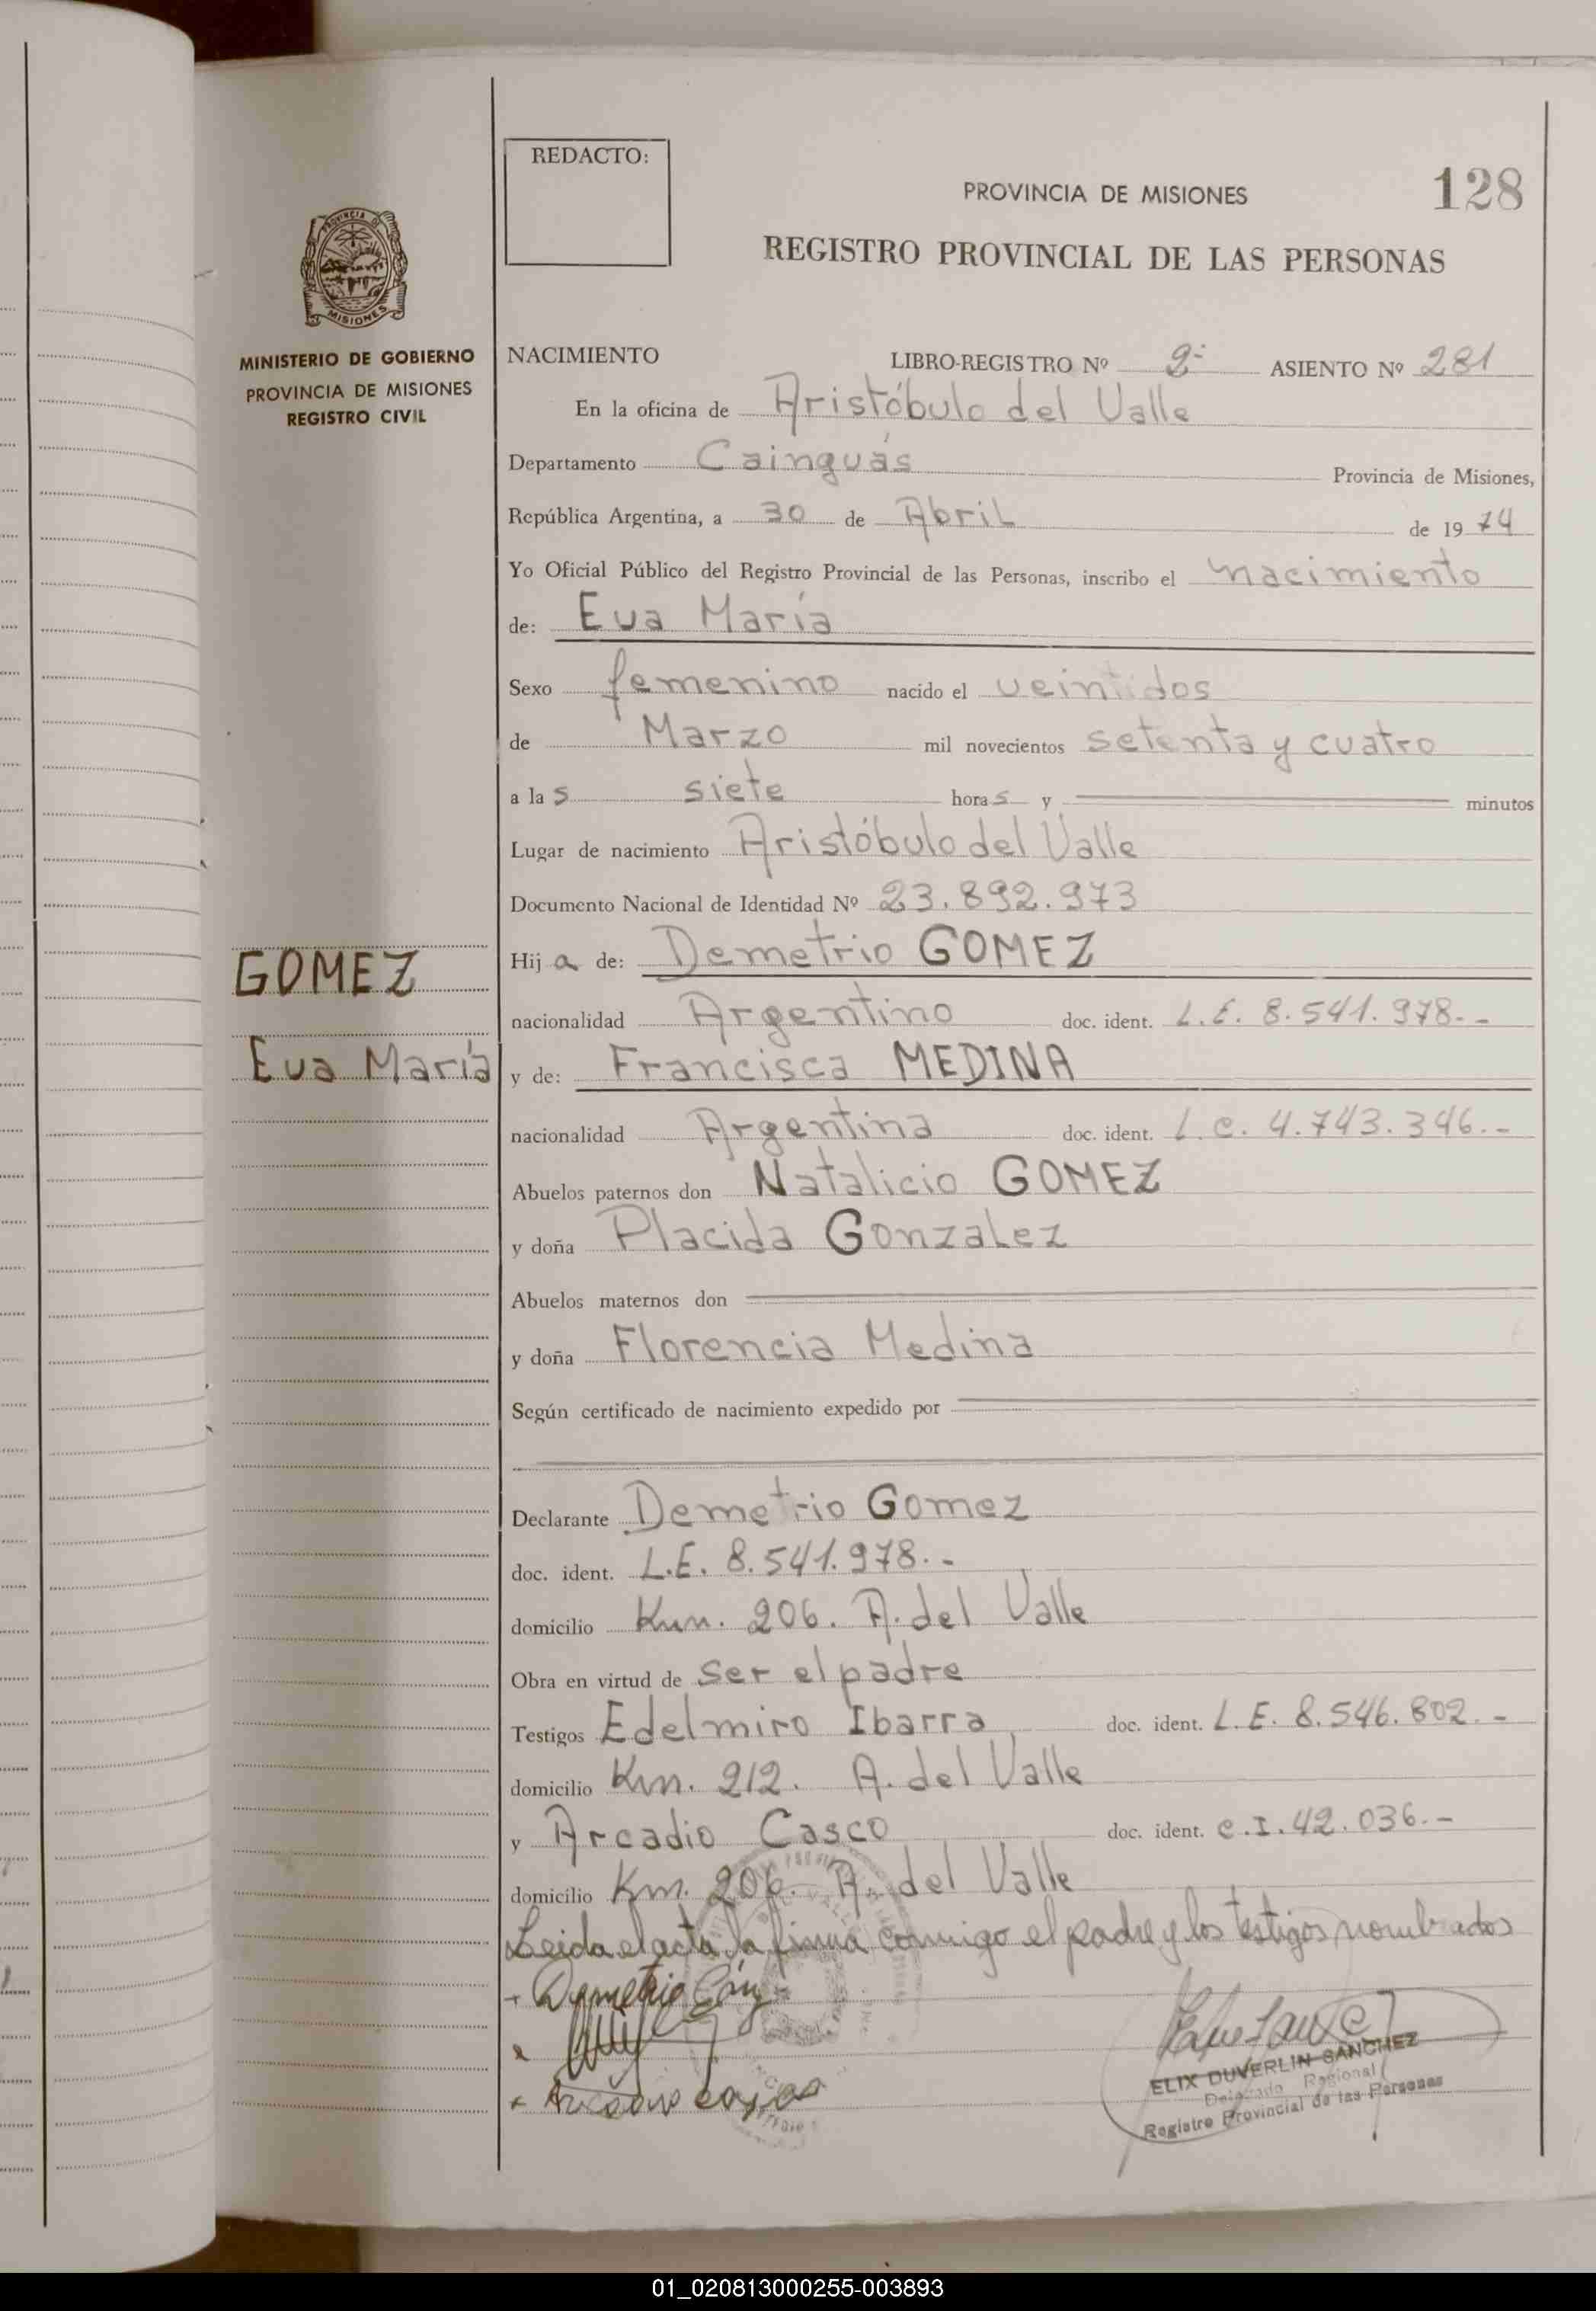 REDACTO:
PROVINCIA DE MISIONES
128
REGISTRO PROVINCIAL DE LAS PERSONAS
PROVINCIA DE
MISIONES
MINISTERIO DE GOBIERNO
PROVINCIA DE MISIONES
REGISTRO CIVIL
NACIMIENTO LIBRO-REGISTRO Nº 2º ASIENTO Nº 281
En la oficina de Aristóbulo del Valle
Departamento Cainguás Provincia de Misiones,
República Argentina, a 30 de Abril de 1974
Yo Oficial Público del Registro Provincial de las Personas, inscribo el nacimiento
de: Eva María
Sexo femenino nacido el veintidos
de Marzo mil novecientos setenta y cuatro
a las siete horas y minutos
Lugar de nacimiento Aristóbulo del Valle
Documento Nacional de Identidad Nº 23.892.973
Hija de: Demetrio GOMEZ
GOMEZ
nacionalidad Argentino doc. ident. L.E. 8.541.978.-
Eva María
y de: Francisca MEDINA
nacionalidad Argentina doc. ident. L.C. 4.743.346.-
Abuelos paternos don Natalicio GOMEZ
y doña Placida Gonzalez
Abuelos maternos don
y doña Florencia Medina
Según certificado de nacimiento expedido por
Declarante Demetrio Gomez
doc. ident. L.E. 8.541.978.-
domicilio Km. 206. A. del Valle
Obra en virtud de ser el padre
Testigos Edelmiro Ibarra doc. ident. L.E. 8.546.802.-
domicilio Km. 212. A. del Valle
y Arcadio Casco doc. ident. C.I. 42.036.-
domicilio Km. 206. A. del Valle
Leida el acta la firma conmigo el padre y los testigos nombrados
Demetrio
ELIX DUVERLIN SANCHEZ
Delegado Regional
Registro Provincial de las Personas
01_020813000255-003893